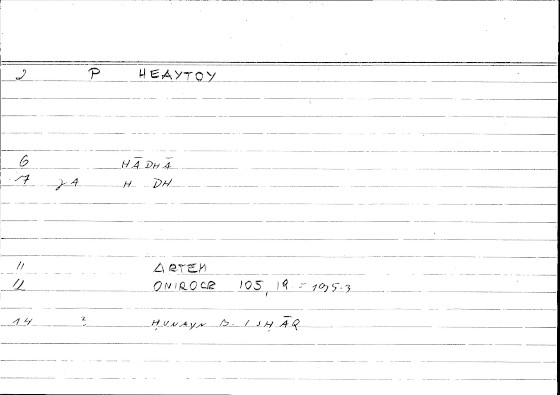 2 P HEAYTOY
6 HĀDHĀ
7 γA H DH
11 ARTEM
12 ONIROCR 105, 19 = 195.3
14 2 ḤUNAYN B. ISḤĀQ